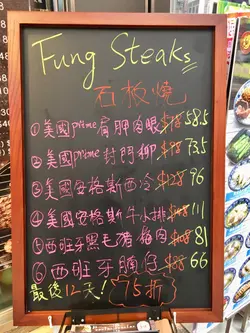 Fung Steaks
石板燒
①美國prime肩胛肉眼 $78 58.5
②美國prime封門柳 $98 73.5
③美國安格斯西冷 $128 96
④美國安格斯牛小排 $148 111
⑤西班牙黑毛豬梅肉 $108 81
⑥西班牙腩仔 $88 66
最後12天! 75折